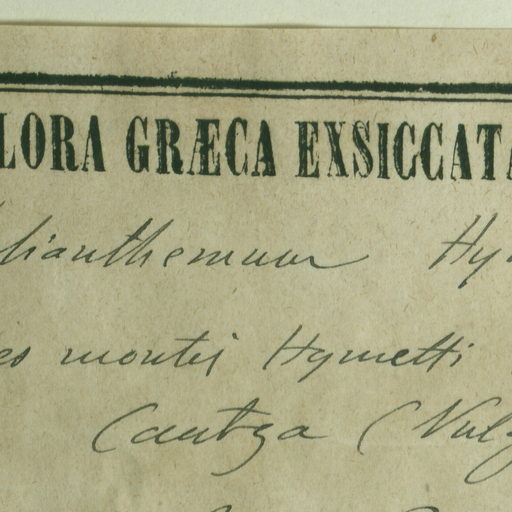 LORA GRÆCA EXSICCATA
lianthemum Hy
es montis Hymetti
Cantza (Vulg